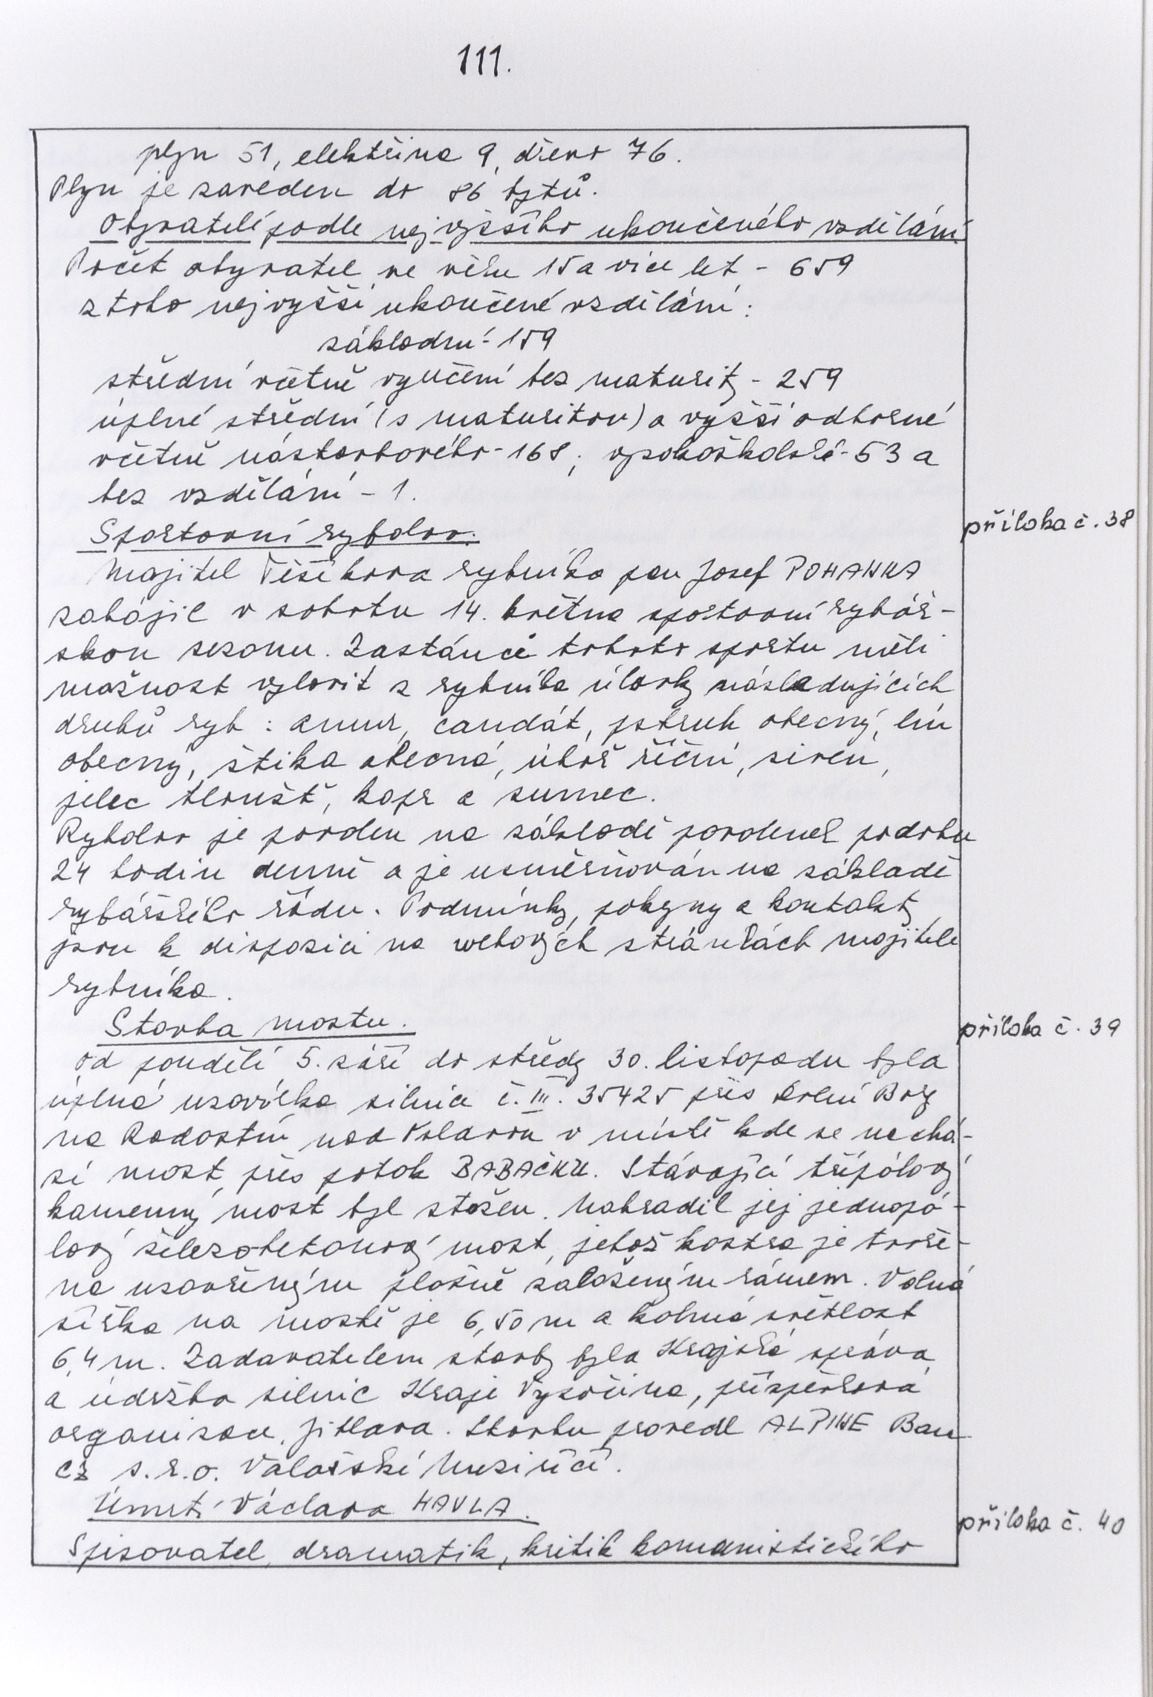 111.
plyn 51, elektřina 9, dřevo 76.
Plyn je zaveden do 86 bytů.
Obyvatelé podle nejvyššího ukončeného vzdělání
Počet obyvatel ve věku 15 a více let - 659
z toho nejvyšší ukončené vzdělání:
základní - 159
střední včetně vyučení bez maturity - 259
úplné střední (s maturitou) a vyšší odborné
včetně nástavbového - 168; vysokoškolské - 53 a
bez vzdělání - 1.
Sportovní rybolov.
příloha č. 38
Majitel Těšíkova rybníka pan Josef POHANKA
zahájil v sobotu 14. května sportovní rybář-
skou sezonu. Zastánci tohoto sportu měli
možnost vylovit z rybníka úlovky následujících
druhů ryb: amur, candát, pstruh obecný, lín
obecný, štika obecná, úhoř říční, siven,
jelec tloušť, kapr a sumec.
Rybolov je povolen na základě povolenek po dobu
24 hodin denně a je usměrňován na základě
rybářského řádu. Podmínky, pokyny a kontakty
jsou k disposici na webových stránkách majitele
rybníka.
Stavba mostu.
příloha č. 39
Od pondělí 5. září do středy 30. listopadu byla
úplná uzavírka silnice č. III. 35425 přes Dolní Bory
na Radostín nad Oslavou v místě kde se nachá-
zí most přes potok BABAČKU. Stávající třípólový
kamenný most byl stržen. Nahradil jej jednopó-
lový železobetonový most, jehož kostra je tvoře-
na uzavřeným plošně založeným rámem. Volná
šířka na mostě je 6,50 m a kolmá světlost
6,4 m. Zadavatelem stavby byla Krajská správa
a údržba silnic Kraje Vysočina, příspěvková
organizace, Jihlava. Stavbu provedl ALPINE Bau
CZ s.r.o. Valašské Meziříčí.
Úmrtí Václava HAVLA.
příloha č. 40
Spisovatel, dramatik, kritik komunistického